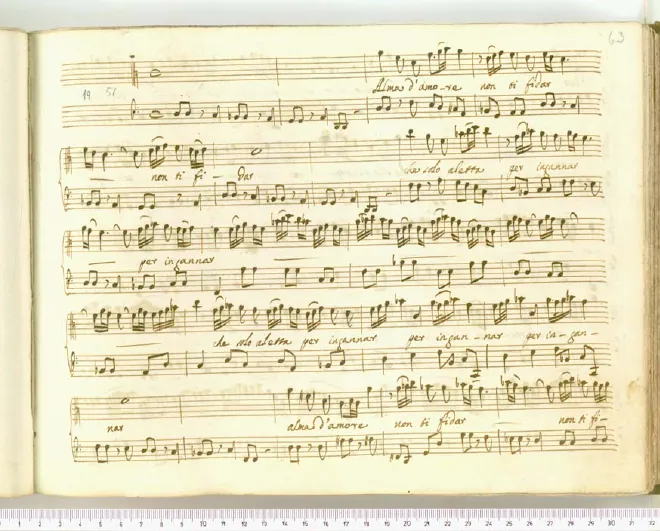 63
Alma d'amore non ti fidar
19 51
non ti fi - dar che solo aletta per ingannar
per ingannar
che solo aletta per ingannar per ingan - nar per in - gan -
nar alma d'amore non ti fidar non ti fi -
1 2 3 4 5 6 7 8 9 10 11 12 13 14 15 16 17 18 19 20 21 22 23 24 25 26 27 28 29 30 31